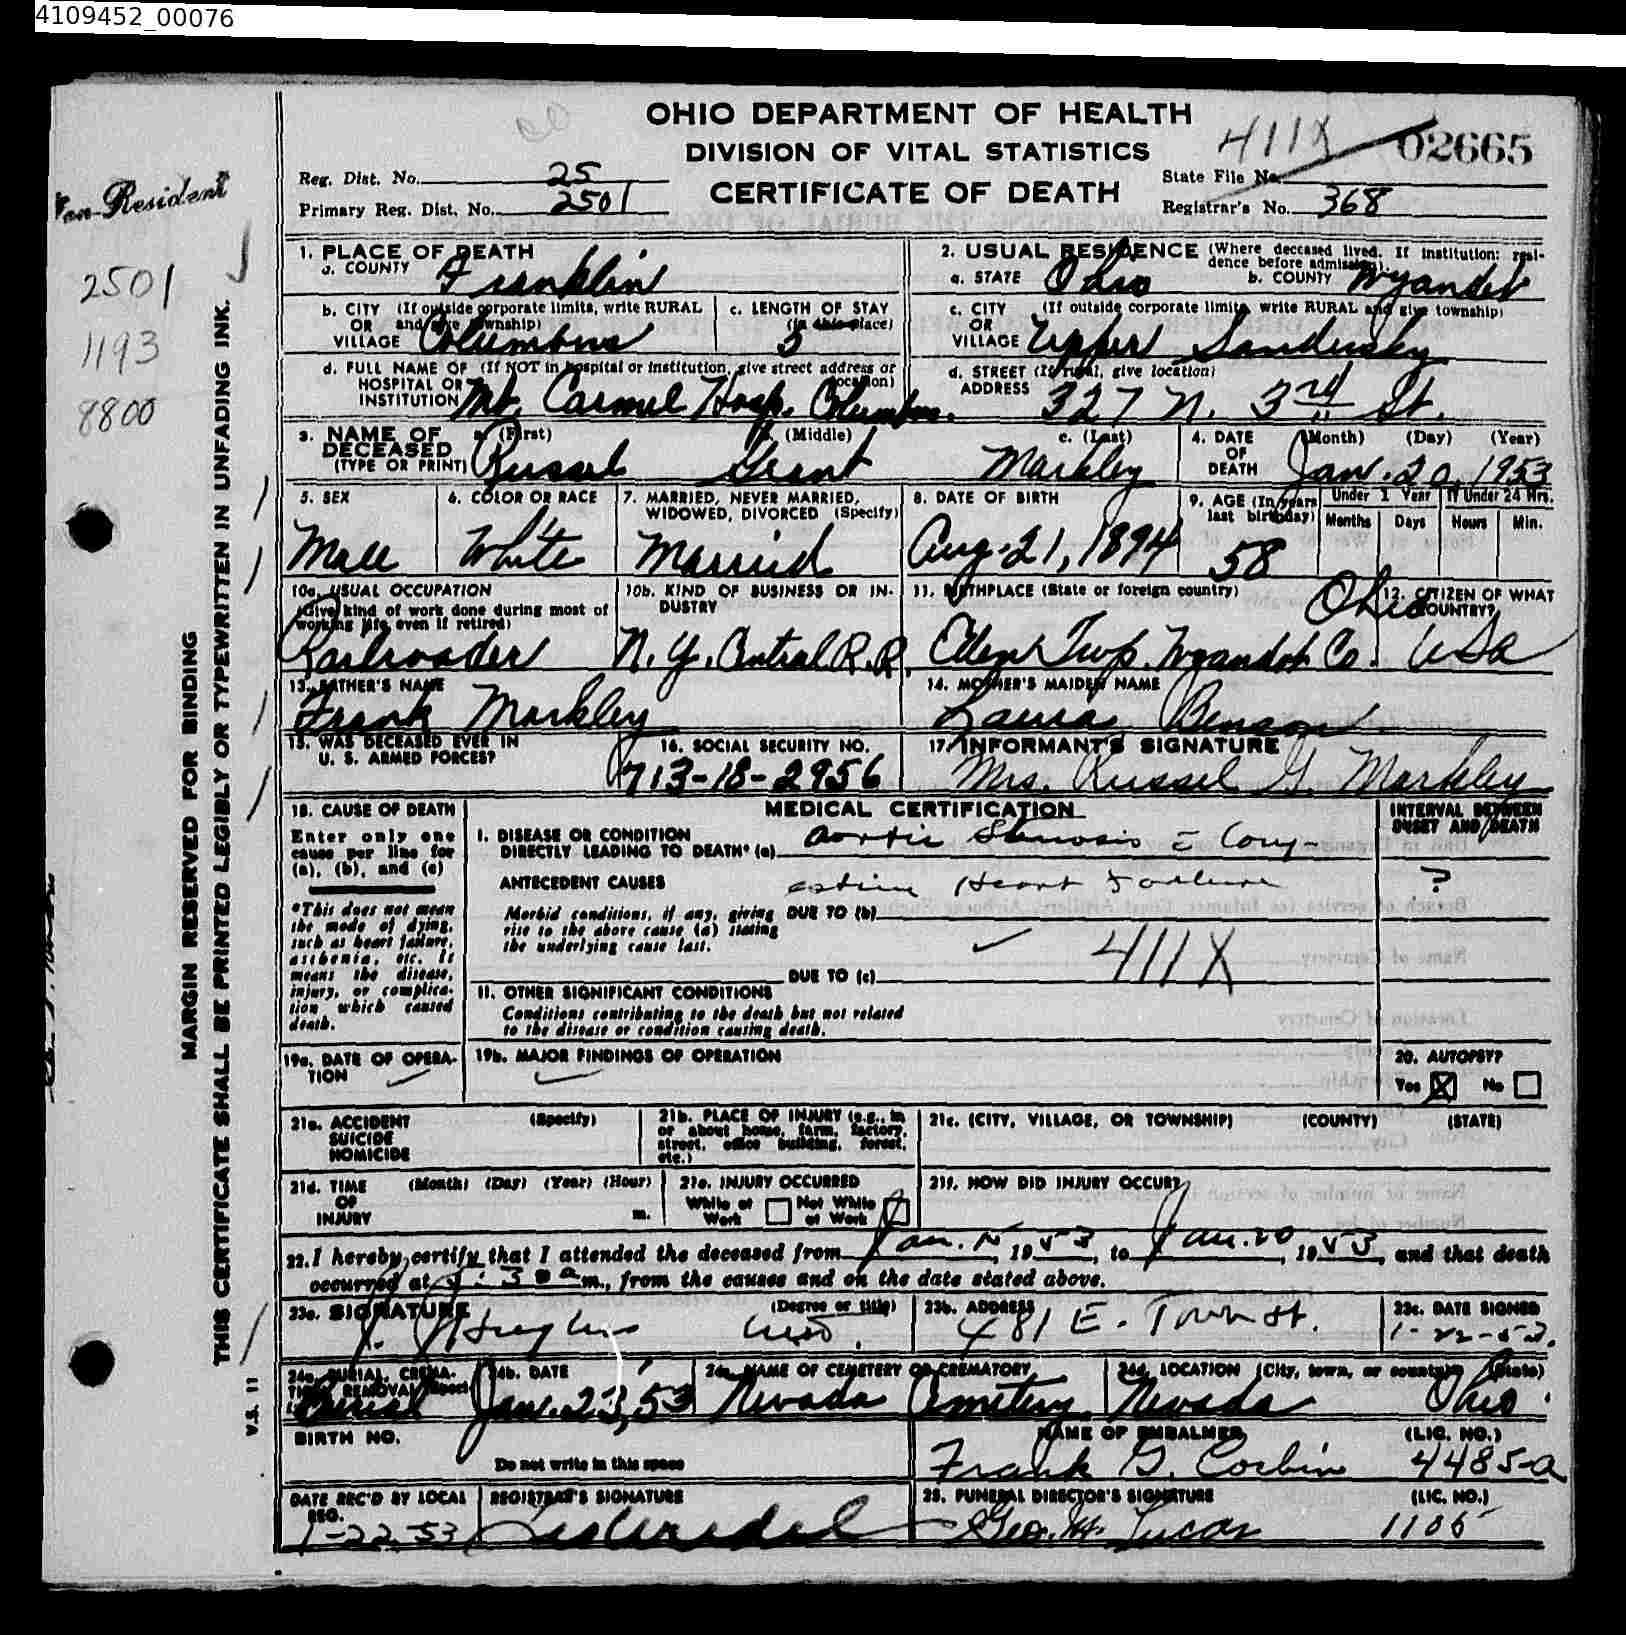 4109452_00076
OHIO DEPARTMENT OF HEALTH
DIVISION OF VITAL STATISTICS
CERTIFICATE OF DEATH
Reg. Dist. No. 25
Primary Reg. Dist. No. 2501
411X 02665
State File No.
Registrar's No. 368
Non-Resident
2501
1193
8800
MARGIN RESERVED FOR BINDING
THIS CERTIFICATE SHALL BE PRINTED LEGIBLY OR TYPEWRITTEN IN UNFADING INK.
V.S. 11
1. PLACE OF DEATH
a. COUNTY Franklin
b. CITY (If outside corporate limits, write RURAL
OR and give township)
VILLAGE Columbus
c. LENGTH OF STAY
(in this place)
5
d. FULL NAME OF (If NOT in hospital or institution, give street address or
HOSPITAL OR location)
INSTITUTION Mt. Carmel Hosp. Columbus.
2. USUAL RESIDENCE (Where deceased lived. If institution: resi-
dence before admission).
a. STATE Ohio b. COUNTY Wyandot
c. CITY (If outside corporate limits, write RURAL and give township)
OR
VILLAGE Upper Sandusky
d. STREET (If rural, give location)
ADDRESS 327 N. 3rd St.
3. NAME OF a. (First) b. (Middle) c. (Last)
DECEASED
(TYPE OR PRINT) Russel Grant Markley
4. DATE (Month) (Day) (Year)
OF
DEATH Jan. 20, 1953
5. SEX
Male
6. COLOR OR RACE
White
7. MARRIED, NEVER MARRIED,
WIDOWED, DIVORCED (Specify)
Married
8. DATE OF BIRTH
Aug. 21, 1894
9. AGE (In years
last birthday)
58
Under 1 Year
Months Days
If Under 24 Hrs.
Hours Min.
10a. USUAL OCCUPATION
(Give kind of work done during most of
working life, even if retired)
Railroader
10b. KIND OF BUSINESS OR IN-
DUSTRY
N. Y. Central R. R.
11. BIRTHPLACE (State or foreign country)
Ohio
Eden Twp. Wyandot Co.
12. CITIZEN OF WHAT
COUNTRY?
USA
13. FATHER'S NAME
Frank Markley
14. MOTHER'S MAIDEN NAME
Laura Benson
15. WAS DECEASED EVER IN
U. S. ARMED FORCES?
16. SOCIAL SECURITY NO.
713-18-2956
17. INFORMANT'S SIGNATURE
Mrs. Russel G. Markley
18. CAUSE OF DEATH
Enter only one
cause per line for
(a), (b), and (c)
*This does not mean
the mode of dying,
such as heart failure,
asthenia, etc. It
means the disease,
injury, or complica-
tion which caused
death.
MEDICAL CERTIFICATION
I. DISEASE OR CONDITION
DIRECTLY LEADING TO DEATH* (a) Aortic Stenosis c Cong-
ANTECEDENT CAUSES estive Heart Failure
Morbid conditions, if any, giving DUE TO (b)
rise to the above cause (a) stating
the underlying cause last.
411X
DUE TO (c)
II. OTHER SIGNIFICANT CONDITIONS
Conditions contributing to the death but not related
to the disease or condition causing death.
INTERVAL BETWEEN
ONSET AND DEATH
?
19a. DATE OF OPERA-
TION
19b. MAJOR FINDINGS OF OPERATION
20. AUTOPSY?
Yes X No
21a. ACCIDENT (Specify)
SUICIDE
HOMICIDE
21b. PLACE OF INJURY (e.g., in
or about home, farm, factory,
street, office building, forest,
etc.)
21c. (CITY, VILLAGE, OR TOWNSHIP) (COUNTY) (STATE)
21d. TIME (Month) (Day) (Year) (Hour)
OF
INJURY m.
21e. INJURY OCCURRED
While at Not While
Work at Work
21f. HOW DID INJURY OCCUR?
22. I hereby certify that I attended the deceased from Jan. 1953, to Jan. 20, 1953, and that death
occurred at 30 a m., from the causes and on the date stated above.
23a. SIGNATURE (Degree or title)
J. Hughes M.D.
23b. ADDRESS
481 E. Town St.
23c. DATE SIGNED
1-22-53.
24a. BURIAL, CREMA-
TION, REMOVAL (Specify)
Burial
24b. DATE
Jan. 23, 53
24c. NAME OF CEMETERY OR CREMATORY
Nevada Cemetery
24d. LOCATION (City, town, or county) (State)
Nevada Ohio
BIRTH NO.
Do not write in this space
NAME OF EMBALMER (LIC. NO.)
Frank G. Corbin 4485-a
DATE REC'D BY LOCAL
REG.
1-22-53
REGISTRAR'S SIGNATURE
25. FUNERAL DIRECTOR'S SIGNATURE (LIC. NO.)
Geo. H. Lucas 1106